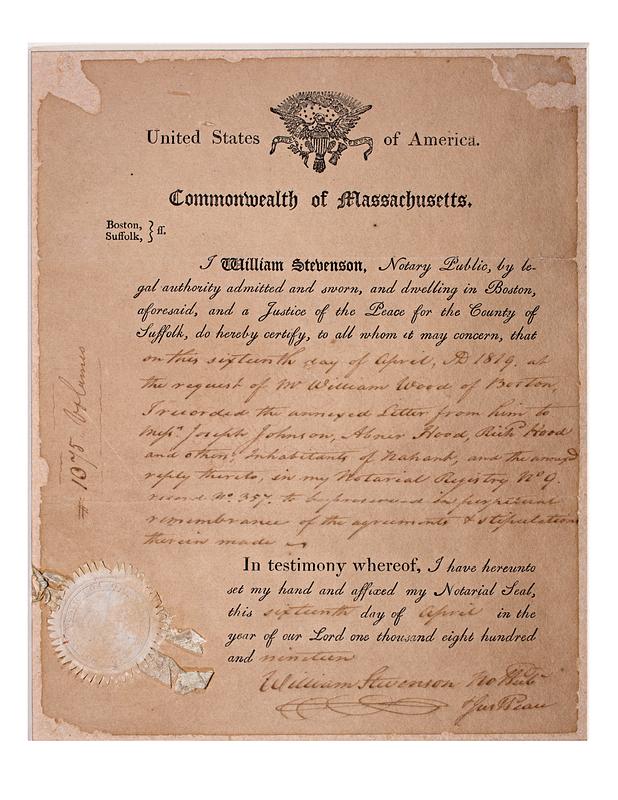 United States of America.
Commonwealth of Massachusetts.
Boston,
Suffolk, } ss.
I William Stevenson, Notary Public, by le-
gal authority admitted and sworn, and dwelling in Boston,
aforesaid, and a Justice of the Peace for the County of
Suffolk, do hereby certify, to all whom it may concern, that
on this sixteenth day of April, AD 1819. at
the request of Mr William Wood of Boston,
I recorded the annexed Letter from him to
Messrs. Joseph Johnson, Abner Hood, Richd Hood
and others, Inhabitants of Nahant, and the annexed
reply thereto, in my Notarial Registry No 9.
record No. 357. to be preserved in perpetual
remembrance of the agreements & stipulations
therein made
In testimony whereof, I have hereunto
set my hand and affixed my Notarial Seal,
this sixteenth day of April in the
year of our Lord one thousand eight hundred
and nineteen
William Stevenson No Pub
Jus Peace
# 1075 Volumes